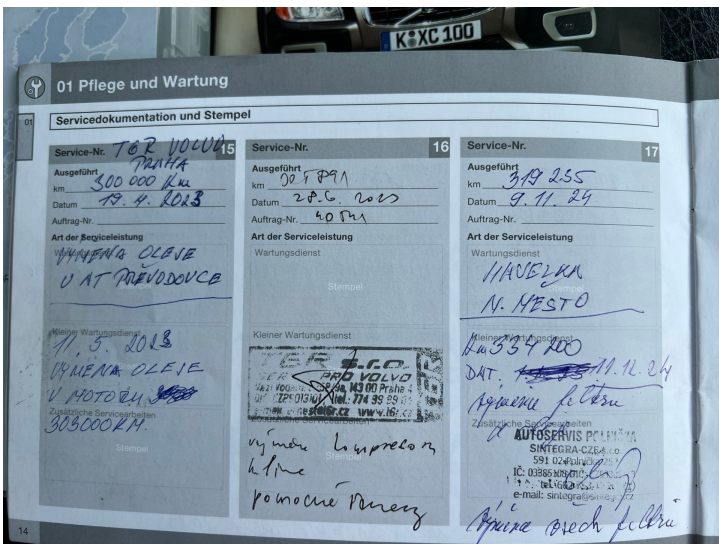 K XC 100
01 Pflege und Wartung
01
Servicedokumentation und Stempel
Service-Nr. TGR VOLVO 15
PRAHA
Ausgeführt
km 300 000 Km
Datum 19. 4. 2023
Auftrag-Nr.
Art der Serviceleistung
Wartungsdienst
VÝMĚNA OLEJE
V AT PŘEVODOVCE
Stempel
Kleiner Wartungsdienst
11. 5. 2023
VÝMĚNA OLEJE
V MOTORU
Zusätzliche Servicearbeiten
303000 KM.
Stempel
14
Service-Nr. 16
Ausgeführt
km
Datum 28.6. 2023
Auftrag-Nr.
Art der Serviceleistung
Wartungsdienst
Stempel
Kleiner Wartungsdienst
s.r.o.
PRO VOLVO
143 00 Praha 4
tel.: 774 39 89
www.t6r.cz
Zusätzliche Servicearbeiten
výměna kompresoru
klima
Stempel
pomocné
Service-Nr. 17
Ausgeführt
km 319 235
Datum 9. 11. 24
Auftrag-Nr.
Art der Serviceleistung
Wartungsdienst
HAVELKA
Stempel
N. MĚSTO
Kleiner Wartungsdienst
Km
DAT. 11.12.24
výměna filtru
Zusätzliche Servicearbeiten
AUTOSERVIS POLNIČKA
SINTEGRA-CZE s.r.o.
591 02 Polnička
IČ:
tel.
e-mail: sintegra@sintegra.cz
výměna všech filtrů